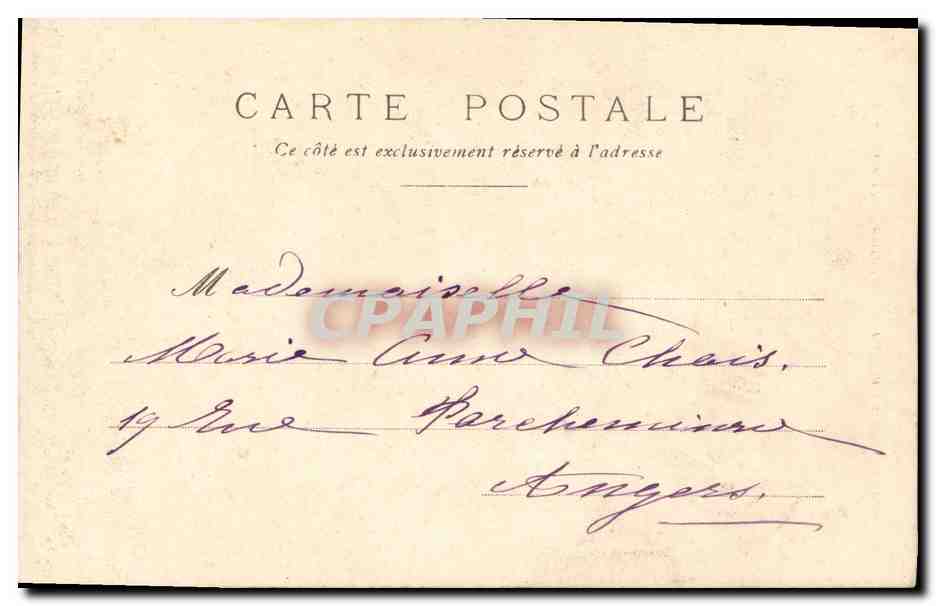 CARTE POSTALE
Ce côté est exclusivement réservé à l'adresse
Mademoiselle
CPAPHIL
Marie Anne Chais.
19 Rue Parcheminerie
Angers.